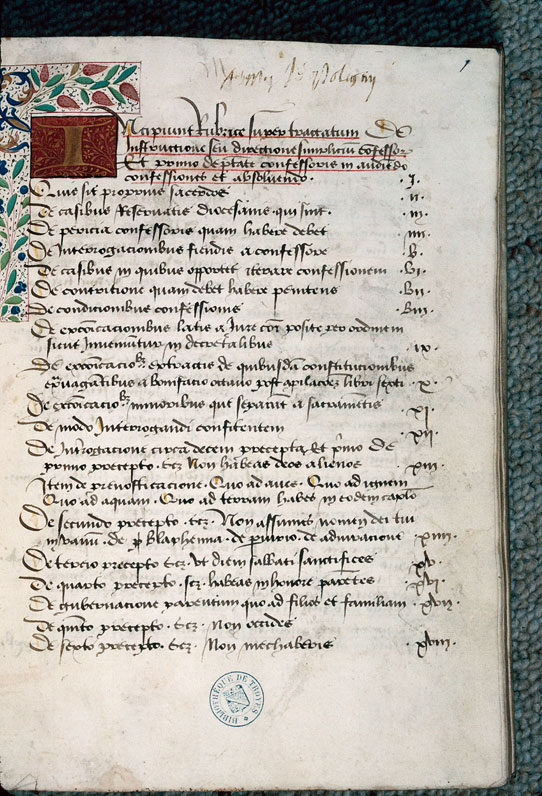 1
INcipiunt Rubrice super tractatum De
Instructione seu directione simplicium confessor
Et primo de ptate confessoris in audiedo
confessiones et absoluendo . I .
Quis sit proprius sacerdos . ii .
De casibus Reseruatis diocesanis qui sint . iii
De pericia confessoris quam habere debet . iiii
De Interrogacionibus fiendis a confessore . V .
De casibus in quibus oportet iterare confessionem . Vi .
De contritione quam debet habere penitens . Vii .
De conditionibus confessionis . Viii .
De excoicacionibus latis a Jure posite per ordinem
sicut Inueniuntur in decretalibus . ix .
De excoicacioibz extractis de quibusda constitucionibus
exuagantibus a bonifacio octauo post libri sexti . x .
De excoicacioibz minoribus que separat a sacrametis . xi .
De modo Interrogandi confitentem . xii .
De Introgacione circa decem precepta Et pmo De
primo precepto . scz Non habeas deos alienos . xiii
Item de Quo ad aues . Quo ad ignem
Quo ad aquam . Quo ad terram habes in eodem caplo
De secundo precepto . scz . Non assumes nomen dei tui
in vanu . de blasphemia . de periurio . de adiuracione . xiiii .
De tercio precepto scz . Vt diem sabbati sanctifices . xv .
De quarto precepto . scz . habeas in honore paretes . xvi .
De gubernacione parentum quo ad filios et familiam . xvii .
De quinto precepto . scz . Non occides
De sexto precepto . scz . Non mechaberis . xviii .
BIBLIOTHEQUE DE TROYES